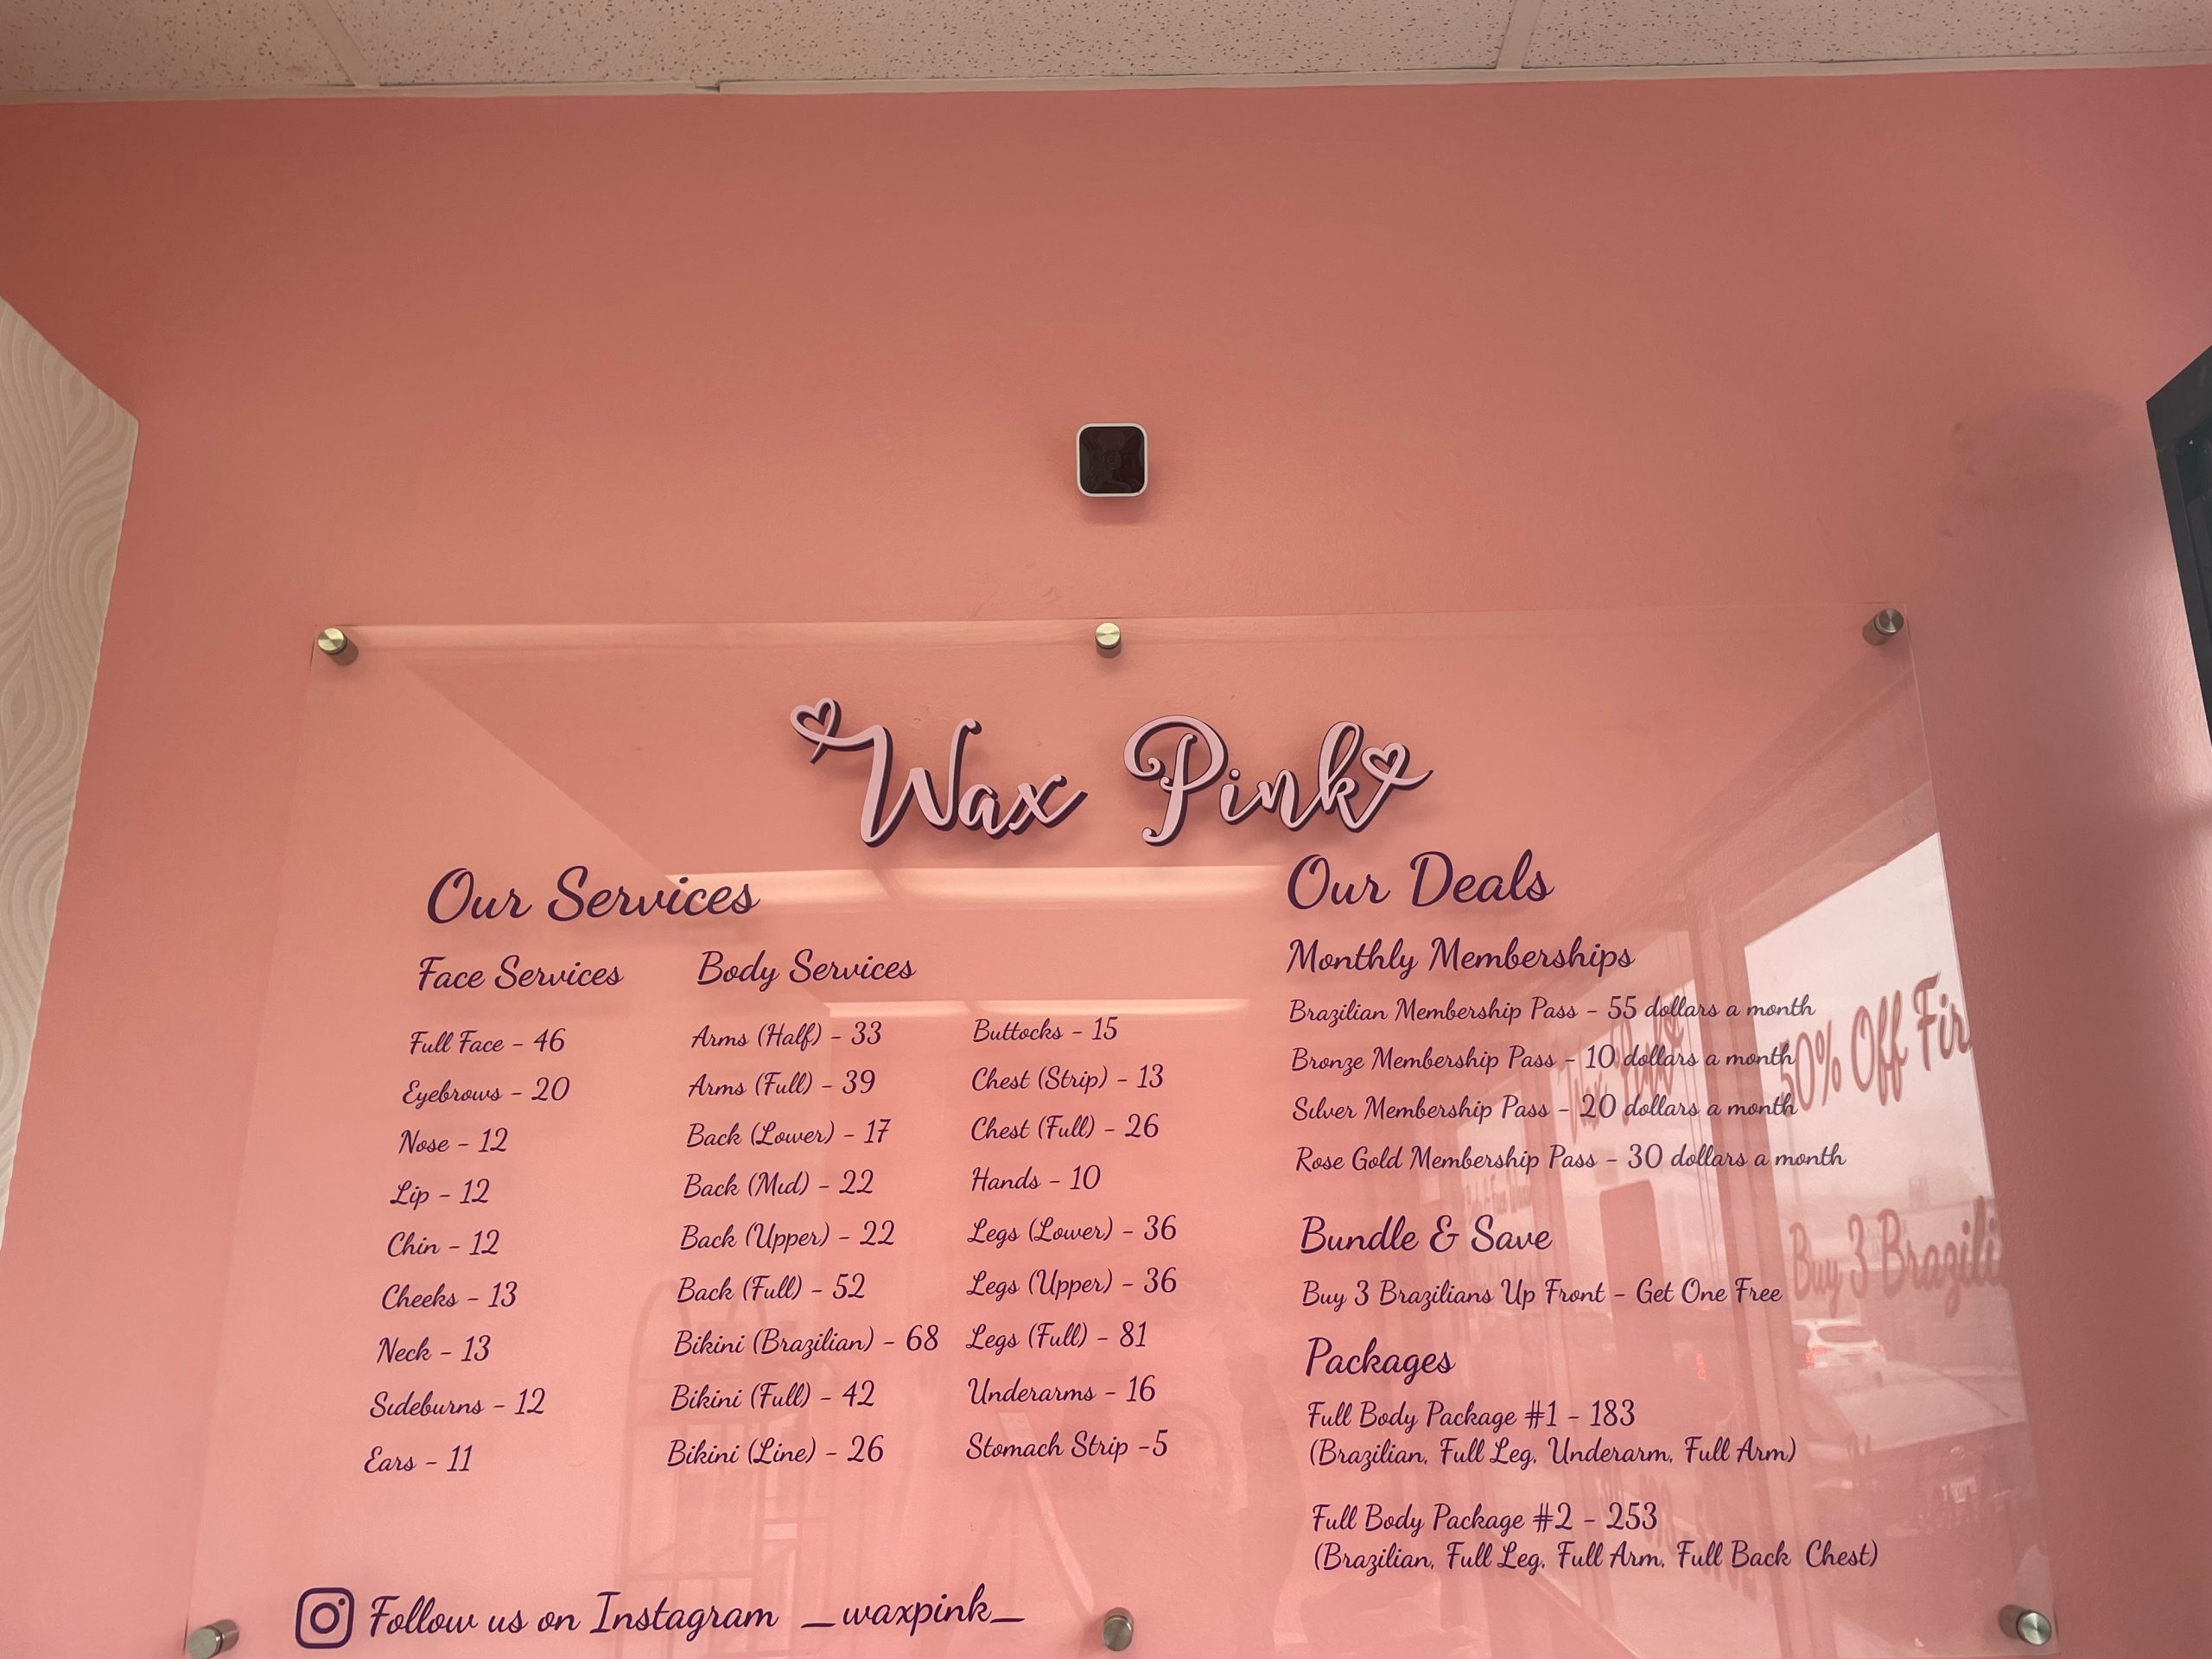 Wax Pink
Our Services
Face Services
Full Face - 46
Eyebrows - 20
Nose - 12
Lip - 12
Chin - 12
Cheeks - 13
Neck - 13
Sideburns - 12
Ears - 11
Body Services
Arms (Half) - 33
Arms (Full) - 39
Back (Lower) - 17
Back (Mid) - 22
Back (Upper) - 22
Back (Full) - 52
Bikini (Brazilian) - 68
Bikini (Full) - 42
Bikini (Line) - 26
Buttocks - 15
Chest (Strip) - 13
Chest (Full) - 26
Hands - 10
Legs (Lower) - 36
Legs (Upper) - 36
Legs (Full) - 81
Underarms - 16
Stomach Strip -5
Our Deals
Monthly Memberships
Brazilian Membership Pass - 55 dollars a month
Bronze Membership Pass - 10 dollars a month
Silver Membership Pass - 20 dollars a month
Rose Gold Membership Pass - 30 dollars a month
Bundle & Save
Buy 3 Brazilians Up Front - Get One Free
Packages
Full Body Package #1 - 183
(Brazilian, Full Leg, Underarm, Full Arm)
Full Body Package #2 - 253
(Brazilian, Full Leg, Full Arm, Full Back Chest)
Follow us on Instagram _waxpink_
50% Off Fir
Buy 3 Brazili